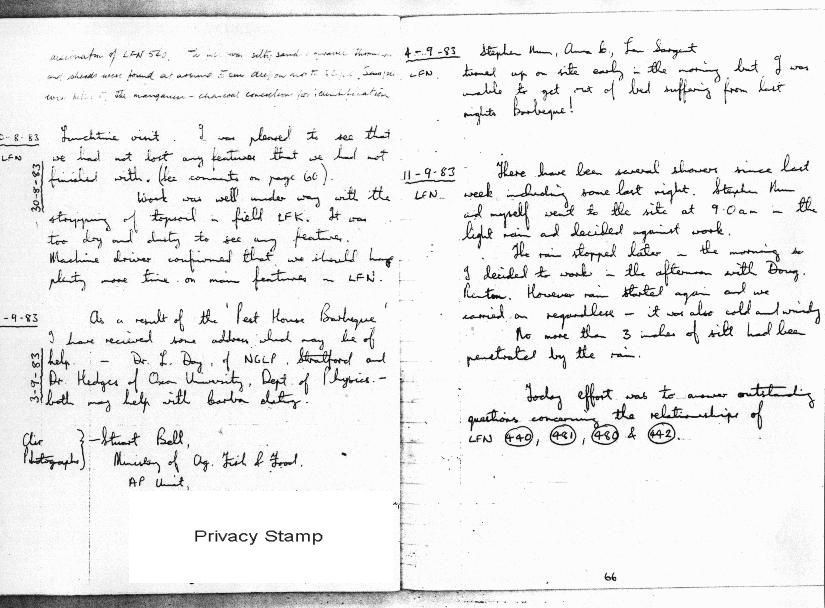 excavation of LFN 520. The
and sherds were found at around 5cm
was
The manganese - charcoal concretion for identification
0-8-83
LFN
30-8-83
Lunchtime visit. I was pleased to see that
we had not lost any features that we had not
finished with. (See comments on page 66).
Work was well under way with the
stropping of topsoil in field LFK. It was
too dry and dusty to see any features.
Machine driver confirmed that we should have
plenty more time on main features in LFN.
-9-83
3-9-83
As a result of the 'Pest House Barbeque
I have received some address which may be of
help. - Dr. L. Day, of NGLP, Stratford and
Dr. Hedges of Oxon University, Dept. of Physics. -
both may help with Carbon dating.
Air
Photographs } - Stuart Bell,
Ministry of Ag. Fish & Food.
AP Unit,
Privacy Stamp
4-9-83
LFN.
Stephen Hum, Anna G, Ian Sargent
turned up on site early in the morning but I was
unable to get out of bed suffering from last
nights Barbeque!
11-9-83
LFN
There have been several showers since last
week including some last night. Stephen Hum
and myself went to the site at 9.0am in the
light rain and decided against work.
The rain stopped later in the morning so
I decided to work in the afternoon with Doug.
Renton. However rain started again and we
carried on regardless - it was also cold and windy
No more than 3 inches of silt had been
penetrated by the rain.
Today effort was to answer outstanding
questions concerning the relationships of
LFN 440, 481, 480 & 442.
66